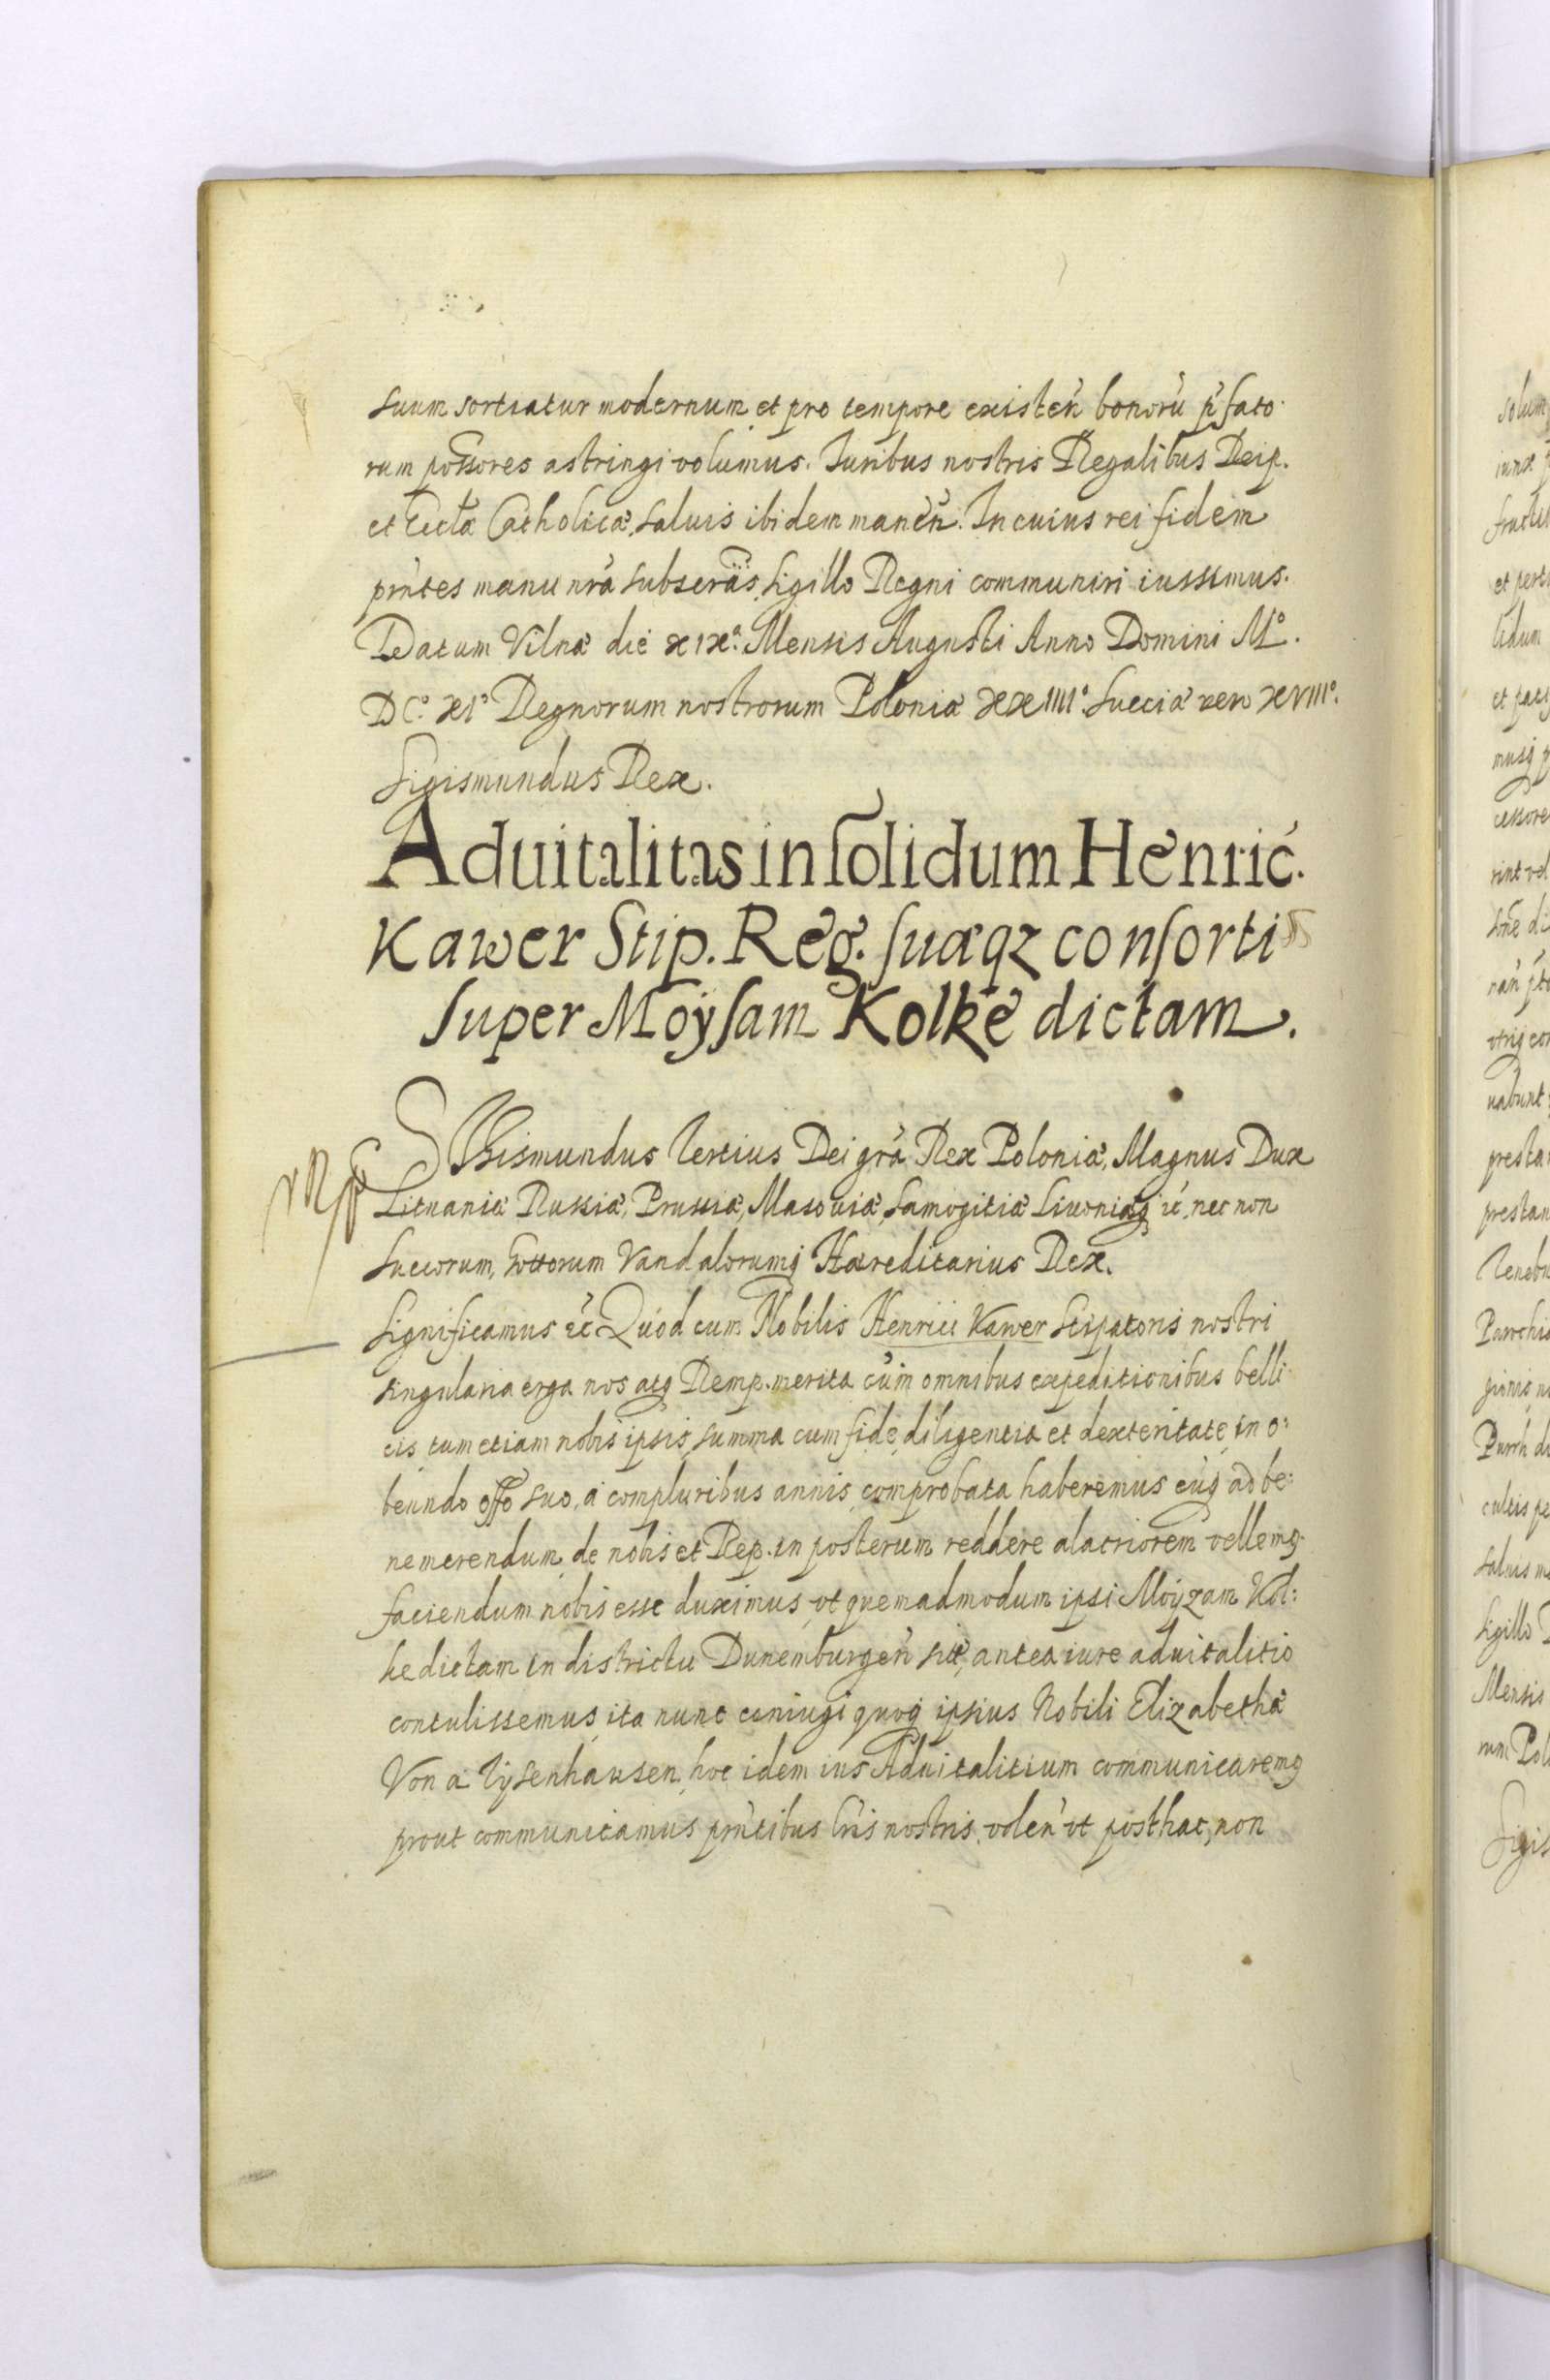 suum sortiatur modernum et pro tempore existeñ bonorũ p̃fato-
rum possores astringi volumus. Iuribus nostris Regalibus Reip.
et Eccłæ Catholicæ, saluis ibidem maneñ. In cuius rei fidem
pñtes manu nrã subscrãs, Sigillo Regni communiri iussimus.
Datum Vilnæ die XIXª. Mensis Augusti Anno Domini Mº.
DCº. XIº Regnorum nostrorum Poloniæ XXIIIIº Sueciæ vero XVIIIº.
Sigismundus Rex.
Aduitalitas in solidum Henrić.
Kawer Stip. Reg. suæqz consorti
super Moÿsam Kolke dictam.
SIgismundus Tertius Dei grã Rex Poloniæ, Magnus Dux
Lituaniæ Russiæ, Prussiæ, Masouiæ, Samogitiæ Liuoniæq; ec̃. nec non
Suecorum, Gottorum Vandalorumq; Hæreditarius Rex.
Significamus ec̃ Quod cum Nobilis Henrici Kawer Stipatoris nostri
singularia erga nos atq; Remp. merita cũm omnibus expeditionibus belli-
cis tum etiam nobis ipsis, summa cum fide, diligentia et dexteritate, in o-
beundo offo suo, à compluribus annis comprobata haberemus eũq; ad be-
ne merendum de nobis et Rep. in posterum reddere alacriorem vellemq
faciendum nobis esse duximus, vt quemadmodum ipsi Moyzam Kol-
ke dictam in districtu Dunemburgeñ sit̃, antea iure aduitalitio
contulissemus, ita nunc coniugi quoq; ipsius Nobili Elizabethæ
Von a Tysenhausen, hoc idem ius Aduitalitium communicaremq
prout communicamus pñtibus lris nostris, voleñ vt posthac, non